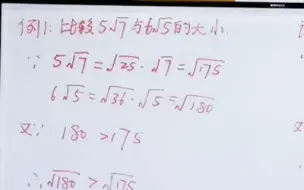 例1: 比较5√7与6√5的大小.
∵ 5√7=√25·√7=√175
6√5=√36·√5=√180
又∵ 180>175
∴ √180>√175